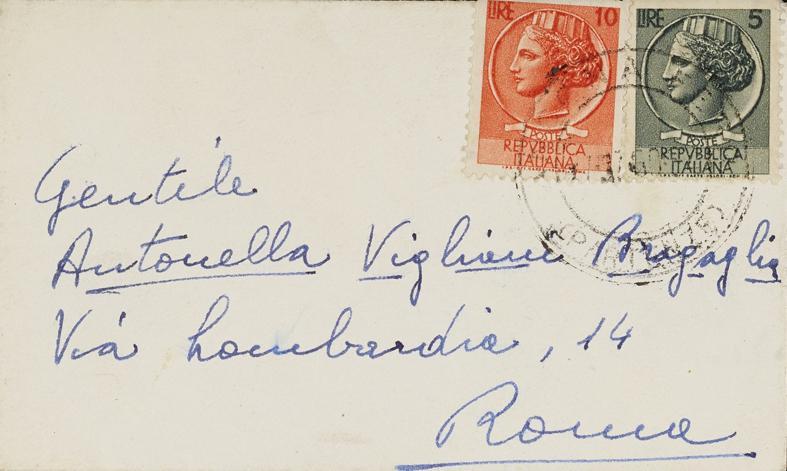 LIRE 10
POSTE
REPVBBLICA
ITALIANA
LIRE 5
POSTE
REPVBBLICA
ITALIANA
Gentile
Antonella Vigliani Bragaglia
Via Lombardia, 14
Roma